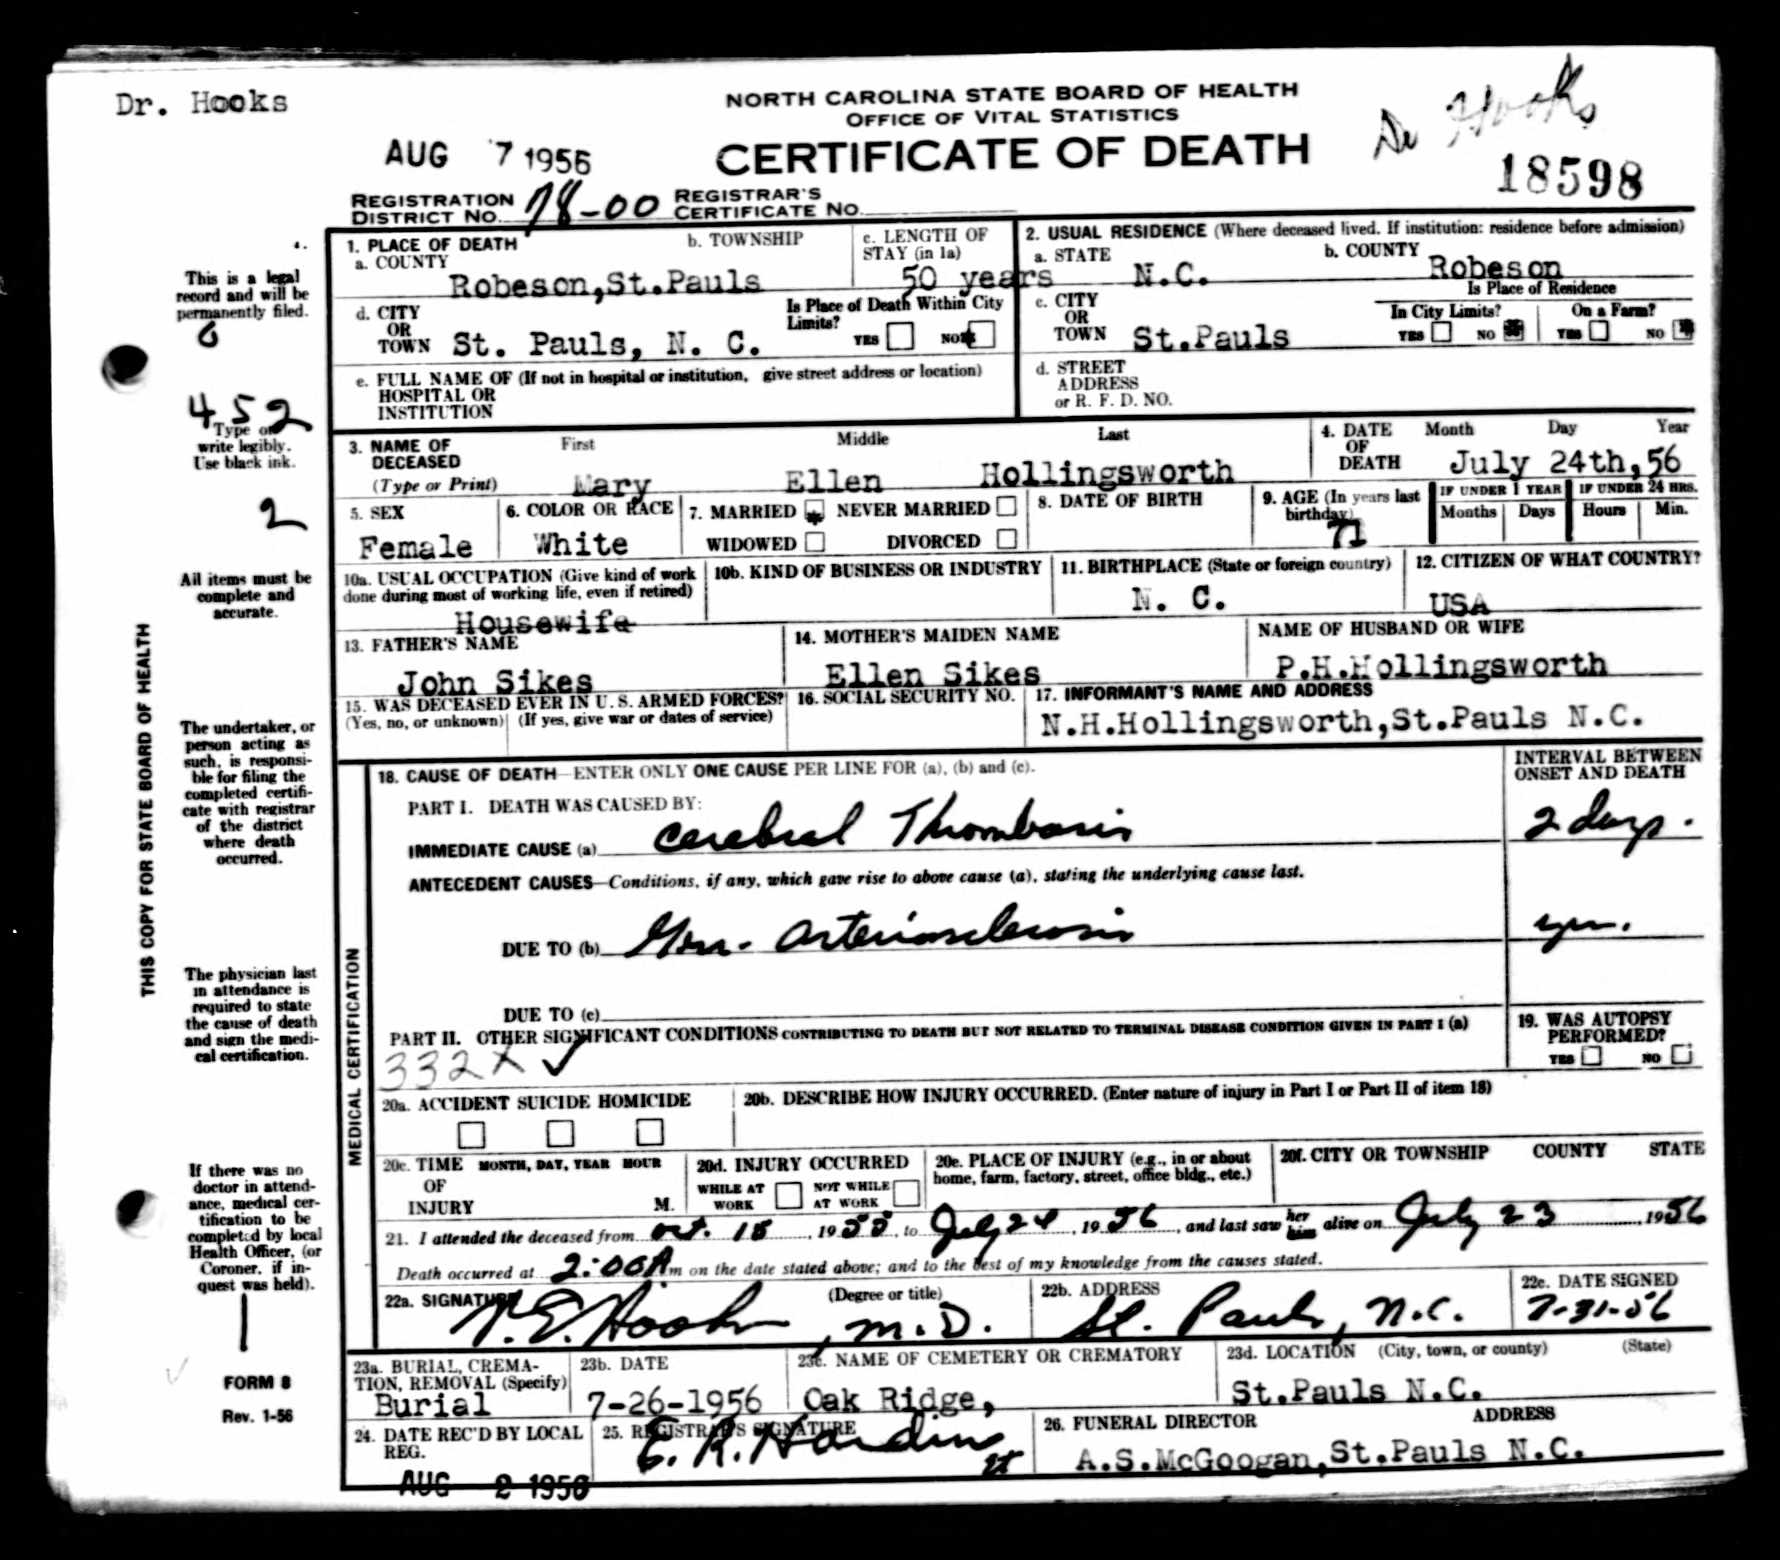 Dr. Hooks
NORTH CAROLINA STATE BOARD OF HEALTH
OFFICE OF VITAL STATISTICS
CERTIFICATE OF DEATH
Dr Hooks
18598
AUG 7 1956
REGISTRATION DISTRICT NO. 78-00 REGISTRAR'S CERTIFICATE NO.
This is a legal
record and will be
permanently filed.
452
Type or
write legibly.
Use black ink.
2
All items must be
complete and
accurate.
The undertaker, or
person acting as
such, is responsi-
ble for filing the
completed certifi-
cate with registrar
of the district
where death
occurred.
The physician last
in attendance is
required to state
the cause of death
and sign the medi-
cal certification.
If there was no
doctor in attend-
ance, medical cer-
tification to be
completed by local
Health Officer, (or
Coroner, if in-
quest was held).
FORM 8
Rev. 1-56
THIS COPY FOR STATE BOARD OF HEALTH
1. PLACE OF DEATH
a. COUNTY
Robeson,St.Pauls
b. TOWNSHIP
c. LENGTH OF
STAY (in 1a)
50 years
2. USUAL RESIDENCE (Where deceased lived. If institution: residence before admission)
a. STATE
N.C.
b. COUNTY
Robeson
d. CITY
OR
TOWN St. Pauls, N. C.
Is Place of Death Within City
Limits?
YES NO
c. CITY
OR
TOWN St.Pauls
Is Place of Residence
In City Limits? On a Farm?
YES NO YES NO
e. FULL NAME OF (If not in hospital or institution, give street address or location)
HOSPITAL OR
INSTITUTION
d. STREET
ADDRESS
or R. F. D. NO.
3. NAME OF
DECEASED
(Type or Print)
First Middle Last
Mary Ellen Hollingsworth
4. DATE
OF
DEATH
Month Day Year
July 24th,56
5. SEX
Female
6. COLOR OR RACE
White
7. MARRIED NEVER MARRIED
WIDOWED DIVORCED
8. DATE OF BIRTH
9. AGE (In years last
birthday)
71
IF UNDER 1 YEAR IF UNDER 24 HRS.
Months Days Hours Min.
10a. USUAL OCCUPATION (Give kind of work
done during most of working life, even if retired)
Housewife
10b. KIND OF BUSINESS OR INDUSTRY
11. BIRTHPLACE (State or foreign country)
N. C.
12. CITIZEN OF WHAT COUNTRY?
USA
13. FATHER'S NAME
John Sikes
14. MOTHER'S MAIDEN NAME
Ellen Sikes
NAME OF HUSBAND OR WIFE
P.H.Hollingsworth
15. WAS DECEASED EVER IN U. S. ARMED FORCES?
(Yes, no, or unknown) (If yes, give war or dates of service)
16. SOCIAL SECURITY NO.
17. INFORMANT'S NAME AND ADDRESS
N.H.Hollingsworth,St.Pauls N.C.
MEDICAL CERTIFICATION
18. CAUSE OF DEATH—ENTER ONLY ONE CAUSE PER LINE FOR (a), (b) and (c).
INTERVAL BETWEEN
ONSET AND DEATH
PART I. DEATH WAS CAUSED BY:
IMMEDIATE CAUSE (a) Cerebral Thrombosis 2 days.
ANTECEDENT CAUSES—Conditions, if any, which gave rise to above cause (a), stating the underlying cause last.
DUE TO (b) Gen. Arteriosclerosis yrs.
DUE TO (c)
PART II. OTHER SIGNIFICANT CONDITIONS CONTRIBUTING TO DEATH BUT NOT RELATED TO TERMINAL DISEASE CONDITION GIVEN IN PART I (a)
332X ✓
19. WAS AUTOPSY
PERFORMED?
YES NO
20a. ACCIDENT SUICIDE HOMICIDE
20b. DESCRIBE HOW INJURY OCCURRED. (Enter nature of injury in Part I or Part II of item 18)
20c. TIME MONTH, DAY, YEAR HOUR
OF
INJURY M.
20d. INJURY OCCURRED
WHILE AT NOT WHILE
WORK AT WORK
20e. PLACE OF INJURY (e.g., in or about
home, farm, factory, street, office bldg., etc.)
20f. CITY OR TOWNSHIP COUNTY STATE
21. I attended the deceased from Oct. 15, 1955, to July 24, 1956, and last saw her him alive on July 23 1956
Death occurred at 2:00A m on the date stated above; and to the best of my knowledge from the causes stated.
22a. SIGNATURE (Degree or title)
T.E. Hooks, M.D.
22b. ADDRESS
St. Pauls, N.C.
22c. DATE SIGNED
7-31-56
23a. BURIAL, CREMA-
TION, REMOVAL (Specify)
Burial
23b. DATE
7-26-1956
23c. NAME OF CEMETERY OR CREMATORY
Oak Ridge,
23d. LOCATION (City, town, or county) (State)
St.Pauls N.C.
24. DATE REC'D BY LOCAL
REG.
AUG 2 1956
25. REGISTRAR'S SIGNATURE
E. R. Hardin
26. FUNERAL DIRECTOR ADDRESS
A.S.McGoogan,St.Pauls N.C.